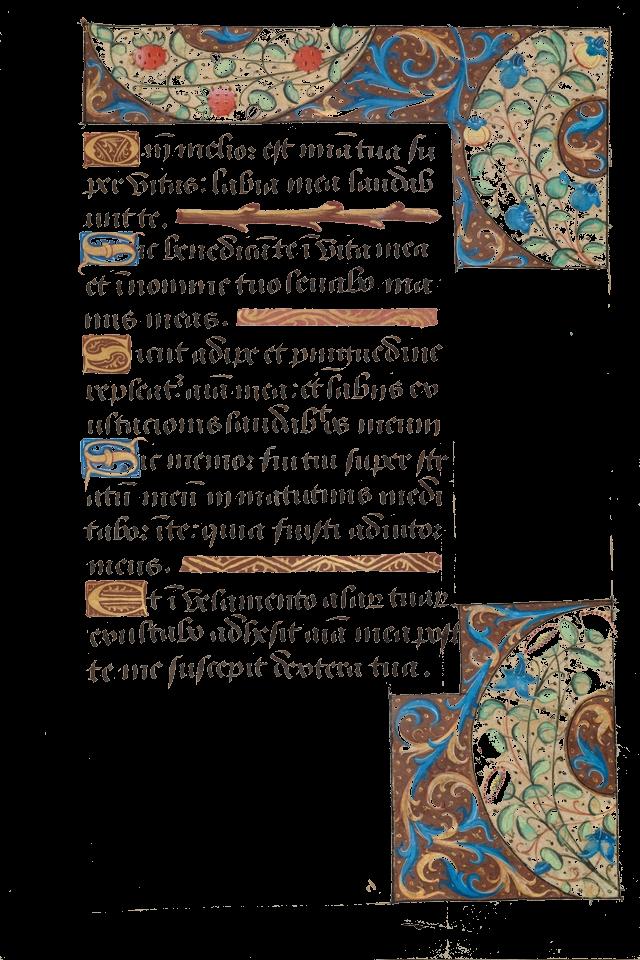 Qm̄ melior est mīa tua su
per vitas: labia mea laudab
unt te.
Sic benedicā te ī vita mea
et ī nomine tuo levabo ma
nus meas.
Sicut adipe et pinguedine
repleat᷑ aīa mea: et labiis ex
ultacionis laudabt os meum
Sic memor fui tui super str
atū meū in matutinis medi
tabor ī te: quia fuisti adiutor
meus.
Et ī velamento alaꝝ tuaꝝ
exultabo adhesit aīa mea post
te me suscepit dextera tua.